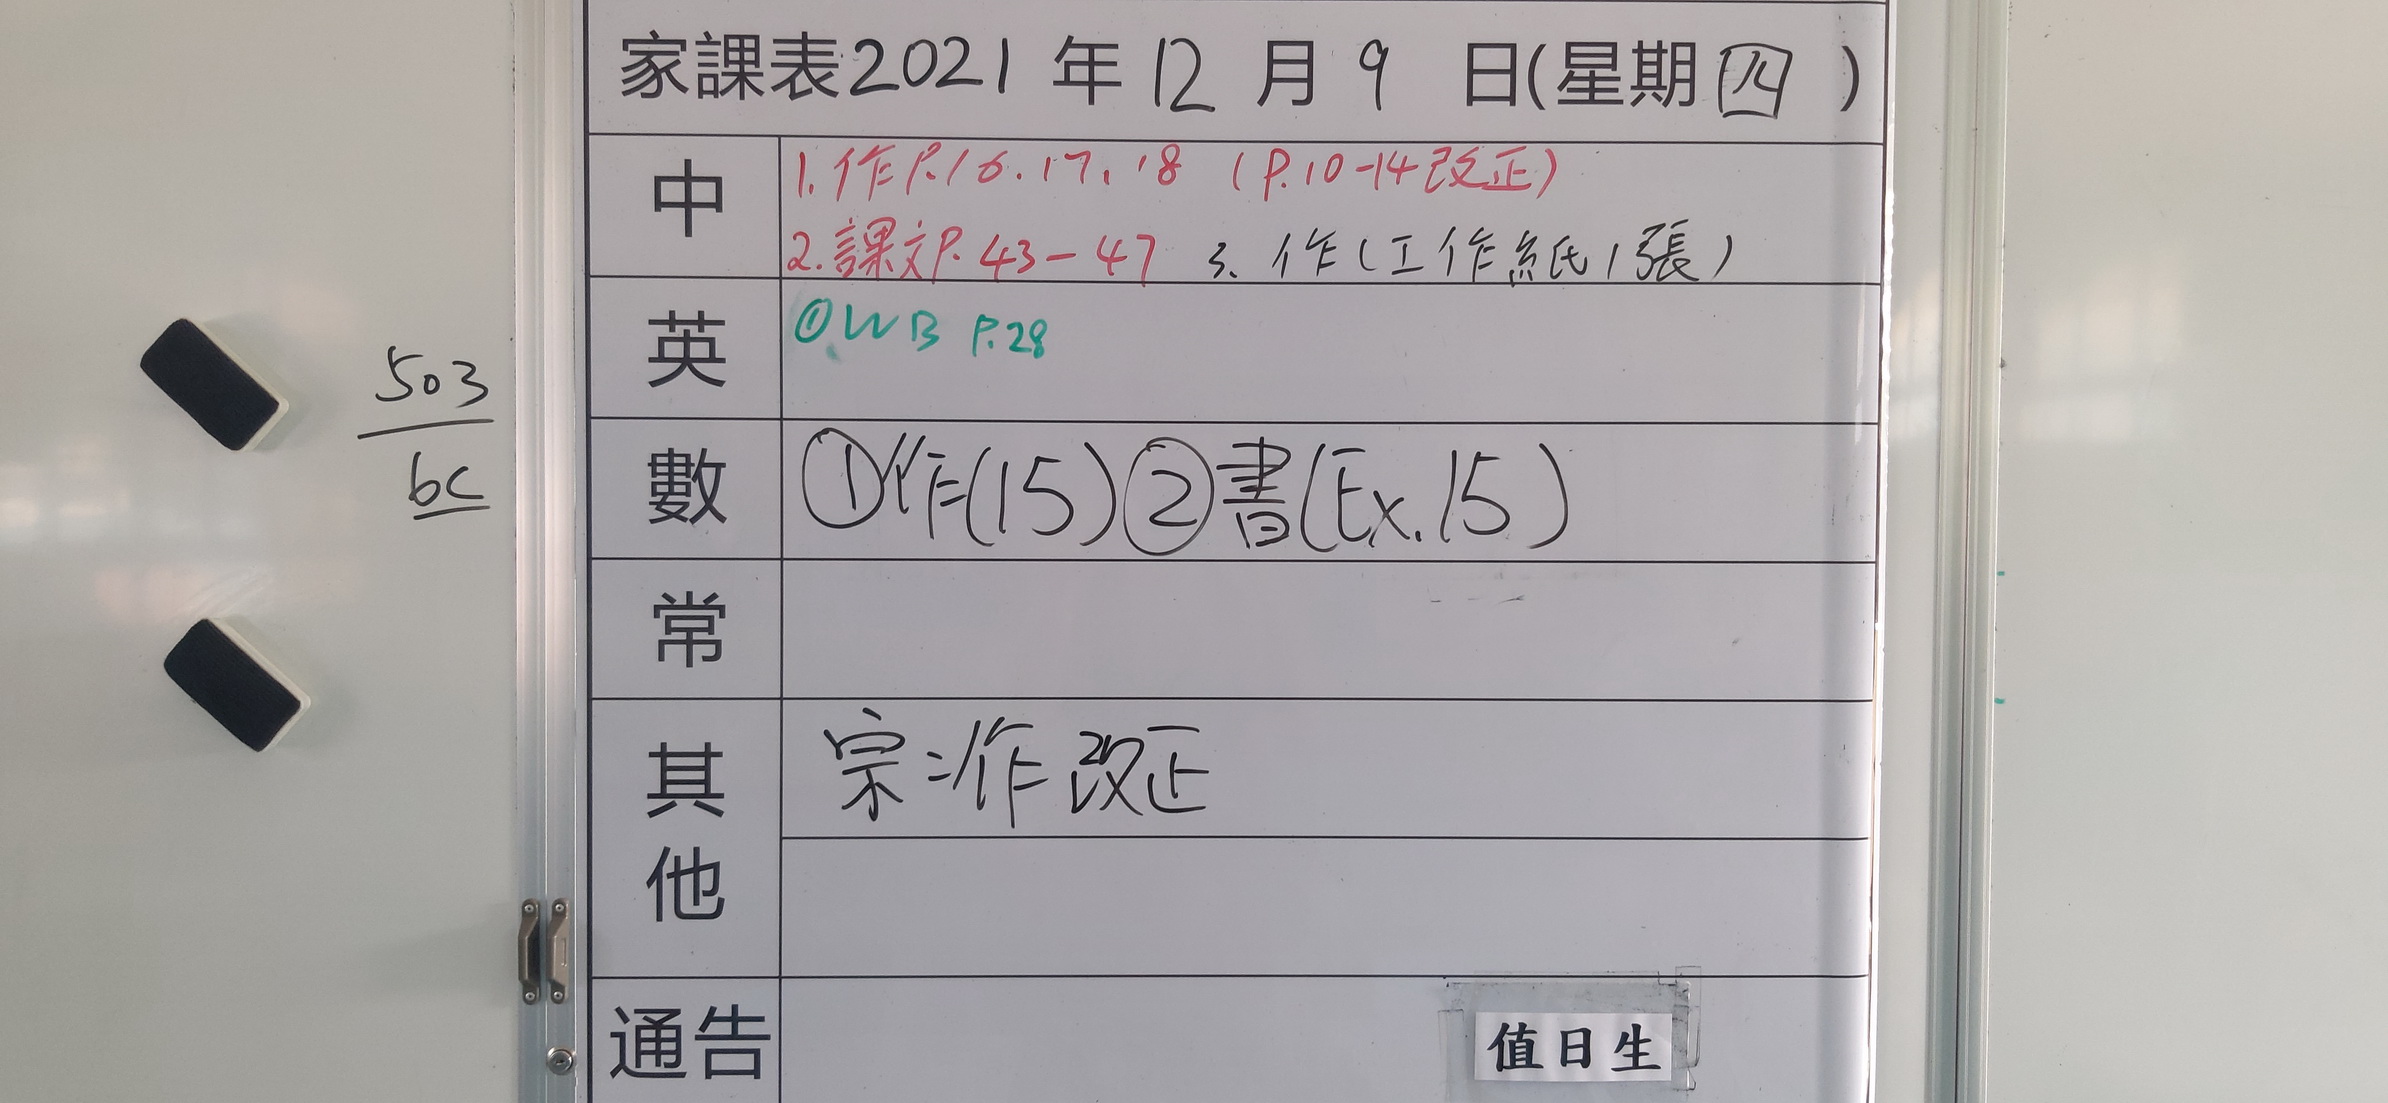 家課表2021年12月9日(星期四)
中
1.作P.16.17.18 (P.10-14改正)
2.課文P.43-47 3.作(工作紙1張)
英
①WB P.28
503
6C
數
①作(15)②書(Ex.15)
常
其他
宗:作改正
通告
值日生